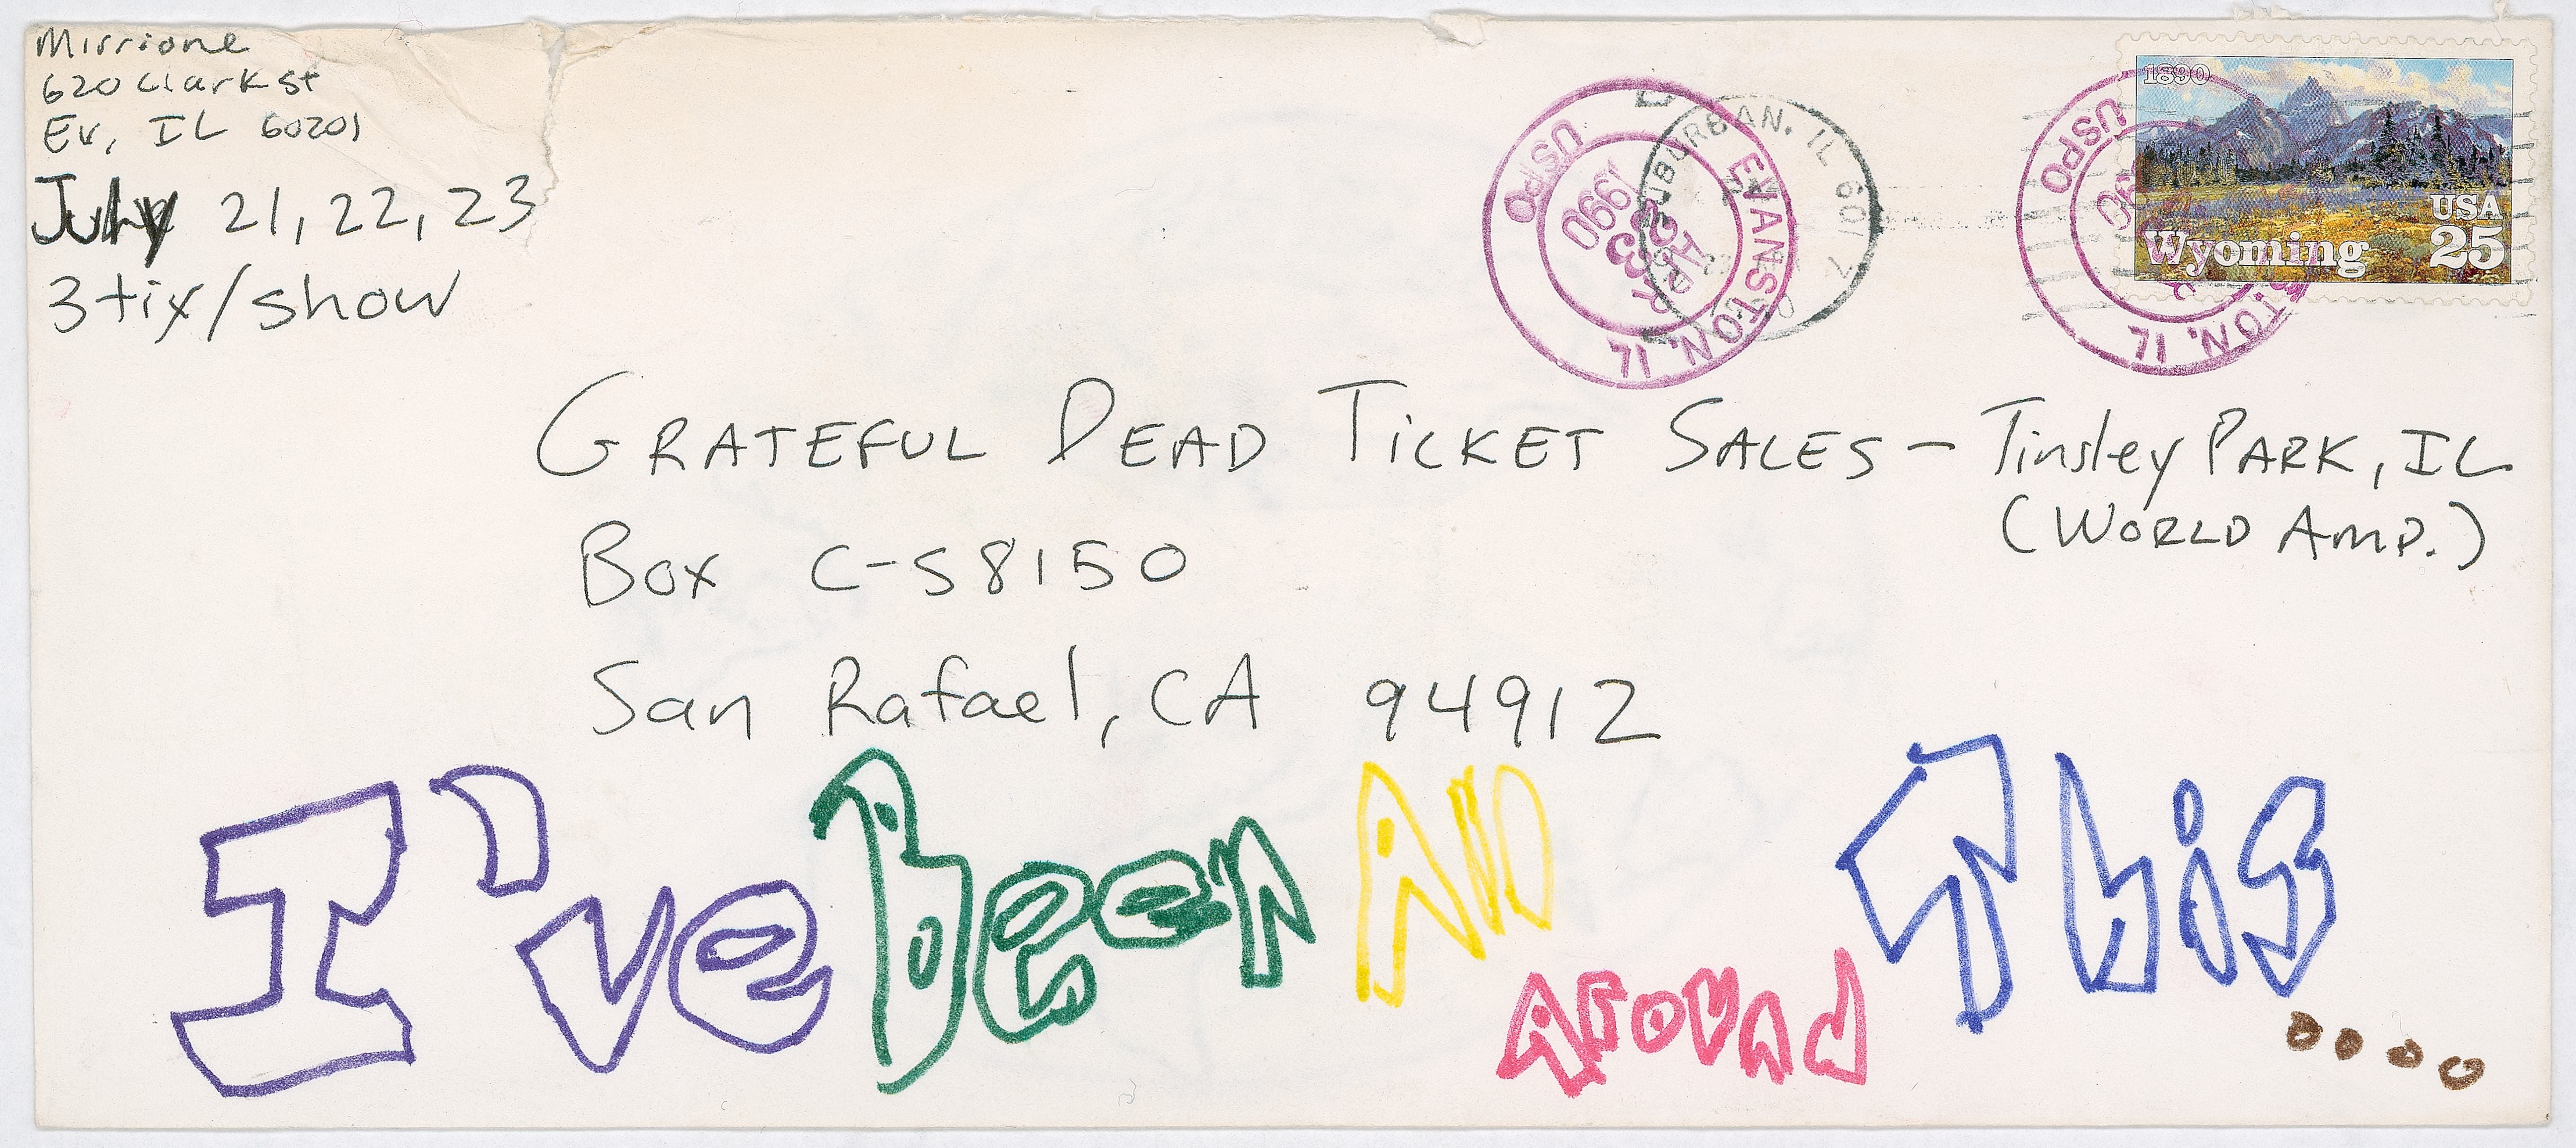 Mirrione
620 Clark St
Ev, IL 60201
July 21, 22, 23
3 tix/show
USPO
EVANSTON, IL
APR
23
1990
SUBURBAN, IL 60
USPO
TON, IL
90
1890
USA
Wyoming 25
GRATEFUL DEAD TICKET SALES - Tinsley PARK, IL
(WORLD AMP.)
Box C-S8150
San Rafael, CA 94912
I've Been All Around This ....